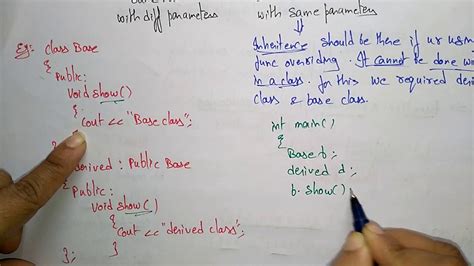 with diff parameters
with same parameters
Eg:- Class Base
{
Public:
Void show()
{
Cout << "Base class";
derived : Public Base
{
Public:
Void show()
{
Cout << "derived class";
}
};
Inheritence should be there if ur
func overriding. It cannot be done
in a class. for this we required
class & base class.
int main()
{
Base b;
derived d;
b. show()